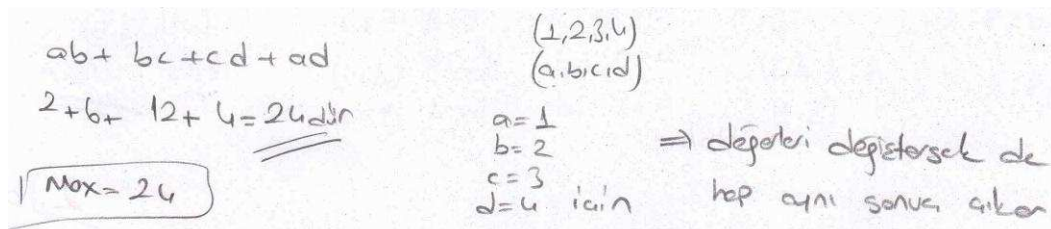 ab + bc + cd + ad
2+6+ 12+ 4 = 24dür
Max = 24
(1,2,3,4)
(a,b,c,d)
a=1
b=2
c=3
d=4 için
⇒ değerleri değistersek de
hep aynı sonuç çıkar